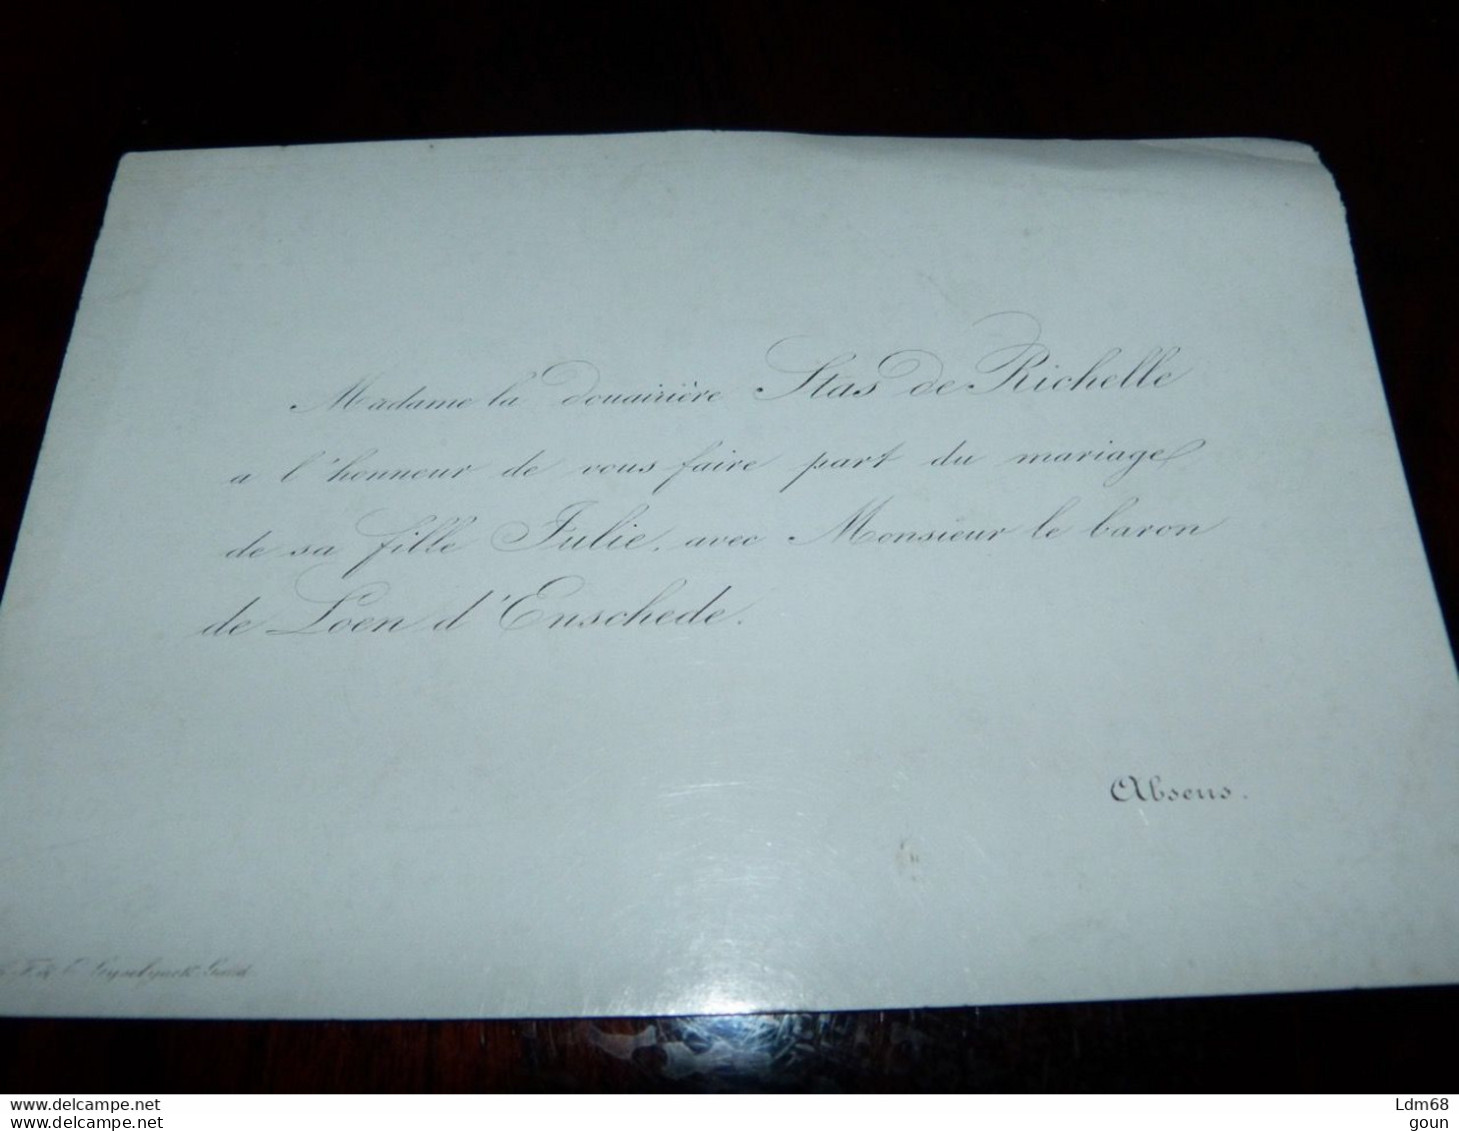 Madame la douairière Stas de Richelle
a l'honneur de vous faire part du mariage
de sa fille Julie, avec Monsieur le baron
de Loen d'Enschede.
Absens.
Gand
www.delcampe.net
www.delcampe.net
Ldm68
goun